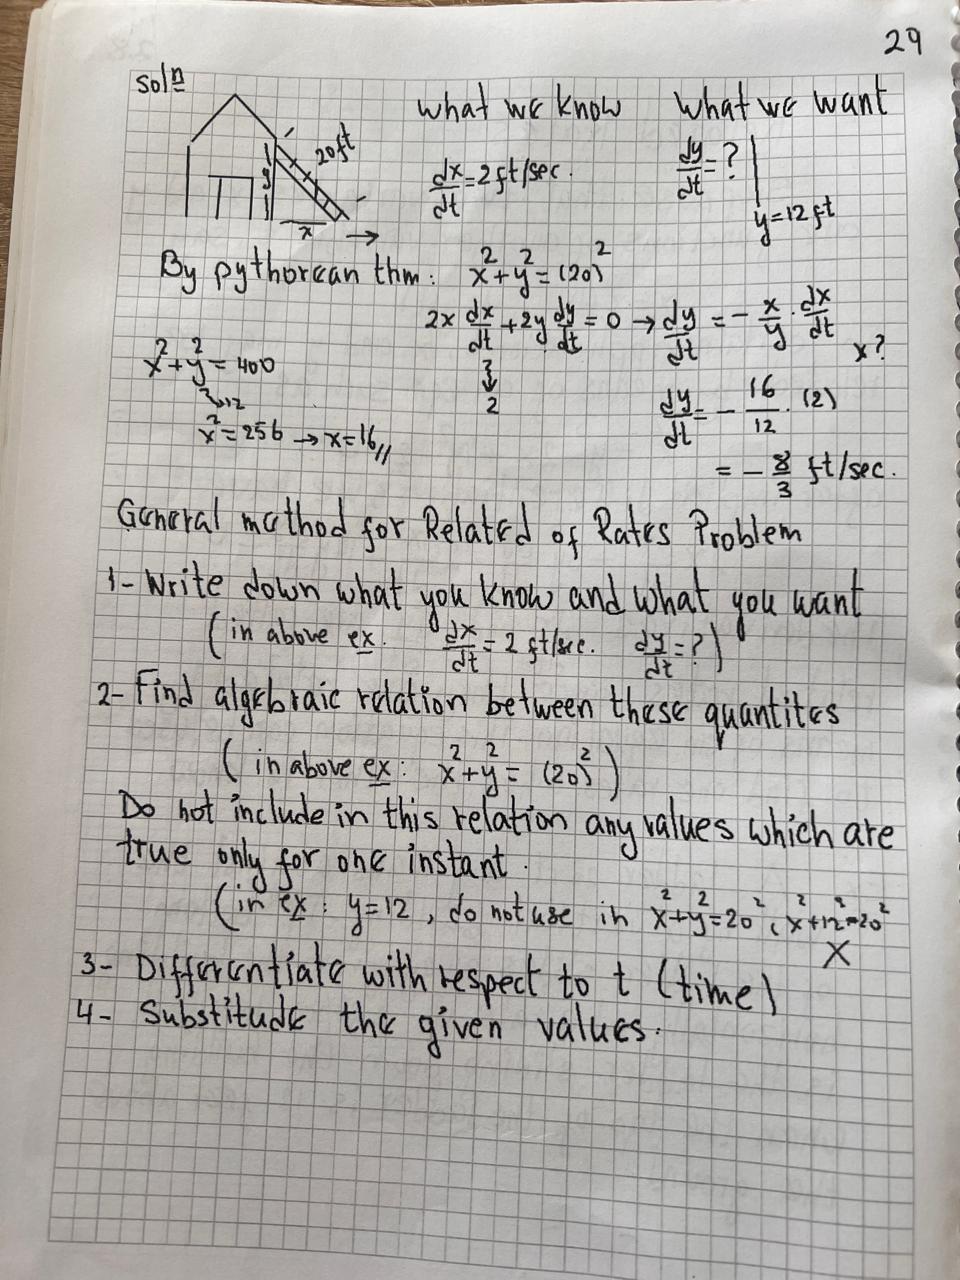 29
Soln
what we know What we want
20ft
y
x
dx/dt = 2 ft/sec. dy/dt = ? | y=12 ft
By pythorean thm: x²+y² = (20)²
2x dx/dt + 2y dy/dt = 0 → dy/dt = - x/y · dx/dt
x?
2
x²+y² = 400
12
x² = 256 → x=16 //
dy/dt = - 16/12 · (2)
= - 8/3 ft/sec.
General method for Related of Rates Problem
1- Write down what you know and what you want
(in above ex. dx/dt = 2 ft/sec. dy/dt = ?)
2- Find algebraic relation between these quantites
(in above ex: x²+y² = (20)²)
Do not include in this relation any values which are
true only for one instant.
(in ex: y=12, do not use in x²+y²=20², x²+12²=20²
X
3- Differentiate with respect to t (time)
4- Substitude the given values.